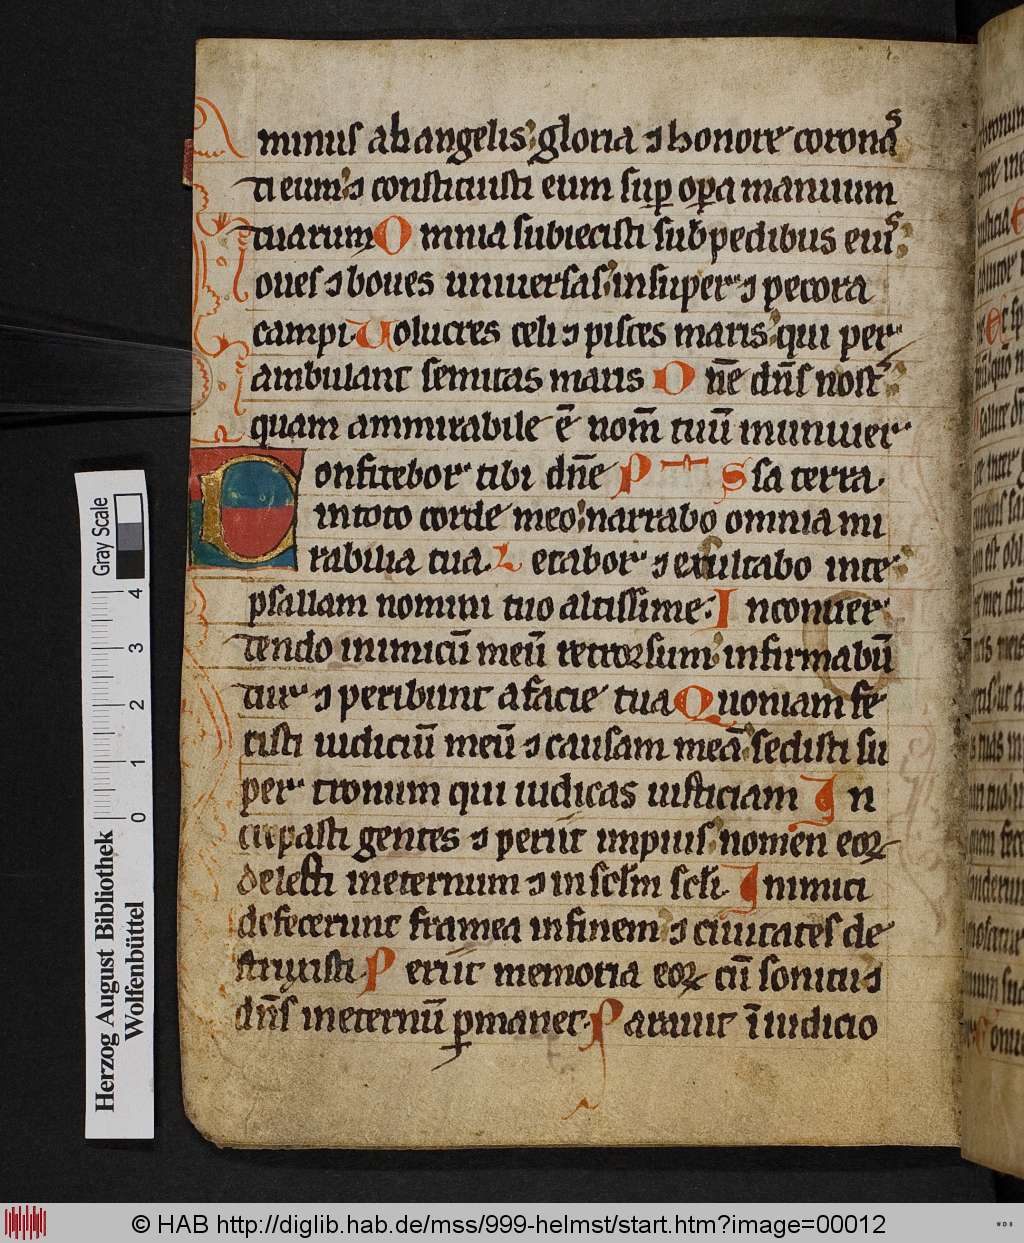 minus ab angelis gloria ⁊ honore corona
sti eum ⁊ constituisti eum suꝑ oꝑa manuum
tuarum Omnia subiecisti sub pedibus eiꝰ
oues ⁊ boues uniuersas insuper ⁊ pecora
campi Uolucres celi ⁊ pisces maris qui per
ambulant semitas maris O ne̅ dn̅s nost
quam ammirabile ē nom̅ tuū inuniuer
onfitebor tibi dn̅e P S sa terra
in toto corde meo narrabo omnia mi
rabilia tua. Letabor ⁊ exultabo in te
psallam nomini tuo altissime. In conuer
tendo inimicū meū retrorsum infirmabū
tur ⁊ peribunt a facie tua Quoniam fe
cisti iudiciū meū ⁊ causam meā sedisti su
per tronum qui iudicas iusticiam In
crepasti gentes ⁊ periit impius nomen eoꝝ
delesti in eternum ⁊ in sclm̅ scl̅i. Inimici
defecerunt framea in finem ⁊ ciuitates de
struxisti Periit memoria eoꝝ cū sonitu ⁊
dn̅s in eternū ꝑmanet. Parauit ī iudicio
Gray Scale
4 3 2 1 0
Herzog August Bibliothek
Wolfenbüttel
© HAB http://diglib.hab.de/mss/999-helmst/start.htm?image=00012